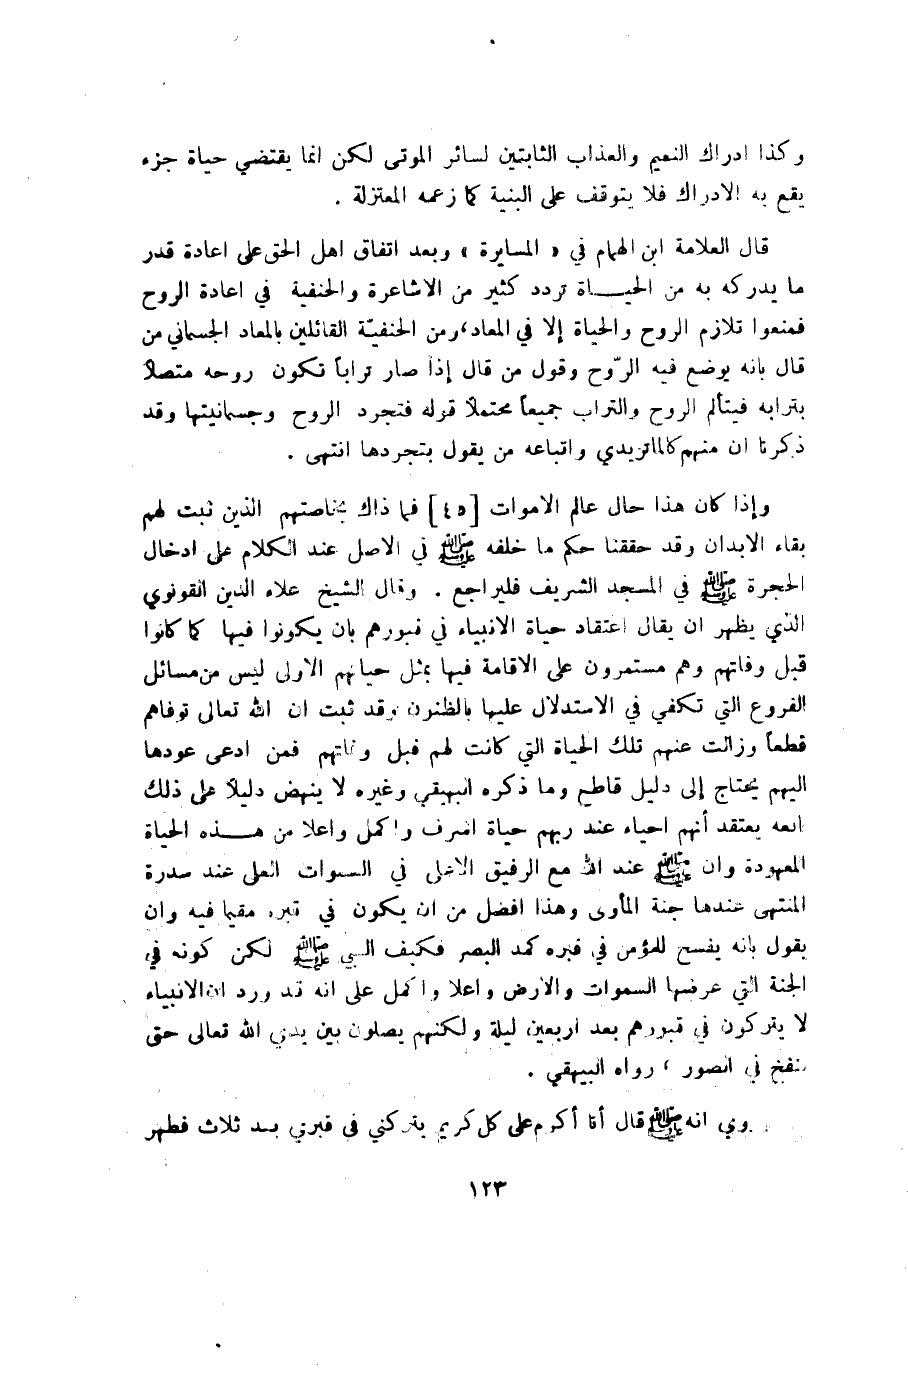 وكذا ادراك النعيم والعذاب الثابتين لسائر الموتى لكن انما يقتضي حياة جزء
يقع به الادراك فلا يتوقف على البنية كما زعمه المعتزلة .
قال العلامة ابن الهمام في « المسايرة » وبعد اتفاق اهل الحق على اعادة قدر
ما يدركه به من الحيـــاة تردد كثير من الاشاعرة والحنفية في اعادة الروح
فمنعوا تلازم الروح والحياة إلا في المعاد، ومن الحنفيّة القائلين بالمعاد الجسماني من
قال بانه يوضع فيه الرّوح وقول من قال إذا صار تراباً تكون روحه متصلاً
بترابه فيتألم الروح والتراب جميعاً محتملاً قوله فتجرد الروح وجسمانيتها وقد
ذكرنا ان منهم كالماتريدي واتباعه من يقول بتجردها انتهى .
وإذا كان هذا حال عالم الاموات [٤٥] فما ذاك بخاصتهم الذين ثبت لهم
بقاء الابدان وقد حققنا حكم ما خلفه ﷺ في الاصل عند الكلام على ادخال
الحجرة ﷺ في المسجد الشريف فليراجع . وقال الشيخ علاء الدين القونوي
الذي يظهر ان يقال اعتقاد حياة الانبياء في قبورهم بان يكونوا فيها كما كانوا
قبل وفاتهم وهم مستمرون على الاقامة فيها بمثل حياتهم الاولى ليس من مسائل
الفروع التي تكفي في الاستدلال عليها بالظنون وقد ثبت ان الله تعالى توفاهم
قطعاً وزالت عنهم تلك الحياة التي كانت لهم قبل وفاتهم فمن ادعى عودها
اليهم يحتاج إلى دليل قاطع وما ذكره البيهقي وغيره لا ينهض دليلاً على ذلك
يعتقد أنهم احياء عند ربهم حياة اشرف واكمل واعلا من هـــذه الحياة
المعهودة وان ﷺ عند الله مع الرفيق الاعلى في السموات العلى عند سدرة
المنتهى عندها جنة المأوى وهذا افضل من ان يكون في قبره مقيما فيه وان
يقول بانه يفسح للمؤمن في قبره كمد البصر فكيف النبي ﷺ لكن كونه في
الجنة التي عرضها السموات والارض واعلا واكمل على انه قد ورد ان الانبياء
لا يتركون في قبورهم بعد اربعين ليلة ولكنهم يصلون بين يدي الله تعالى حتى
ينفخ في الصور ، رواه البيهقي .
وروي انه ﷺ قال أنا أكرم على كل كريم يتركني في قبري بعد ثلاث فظهر
١٢٣